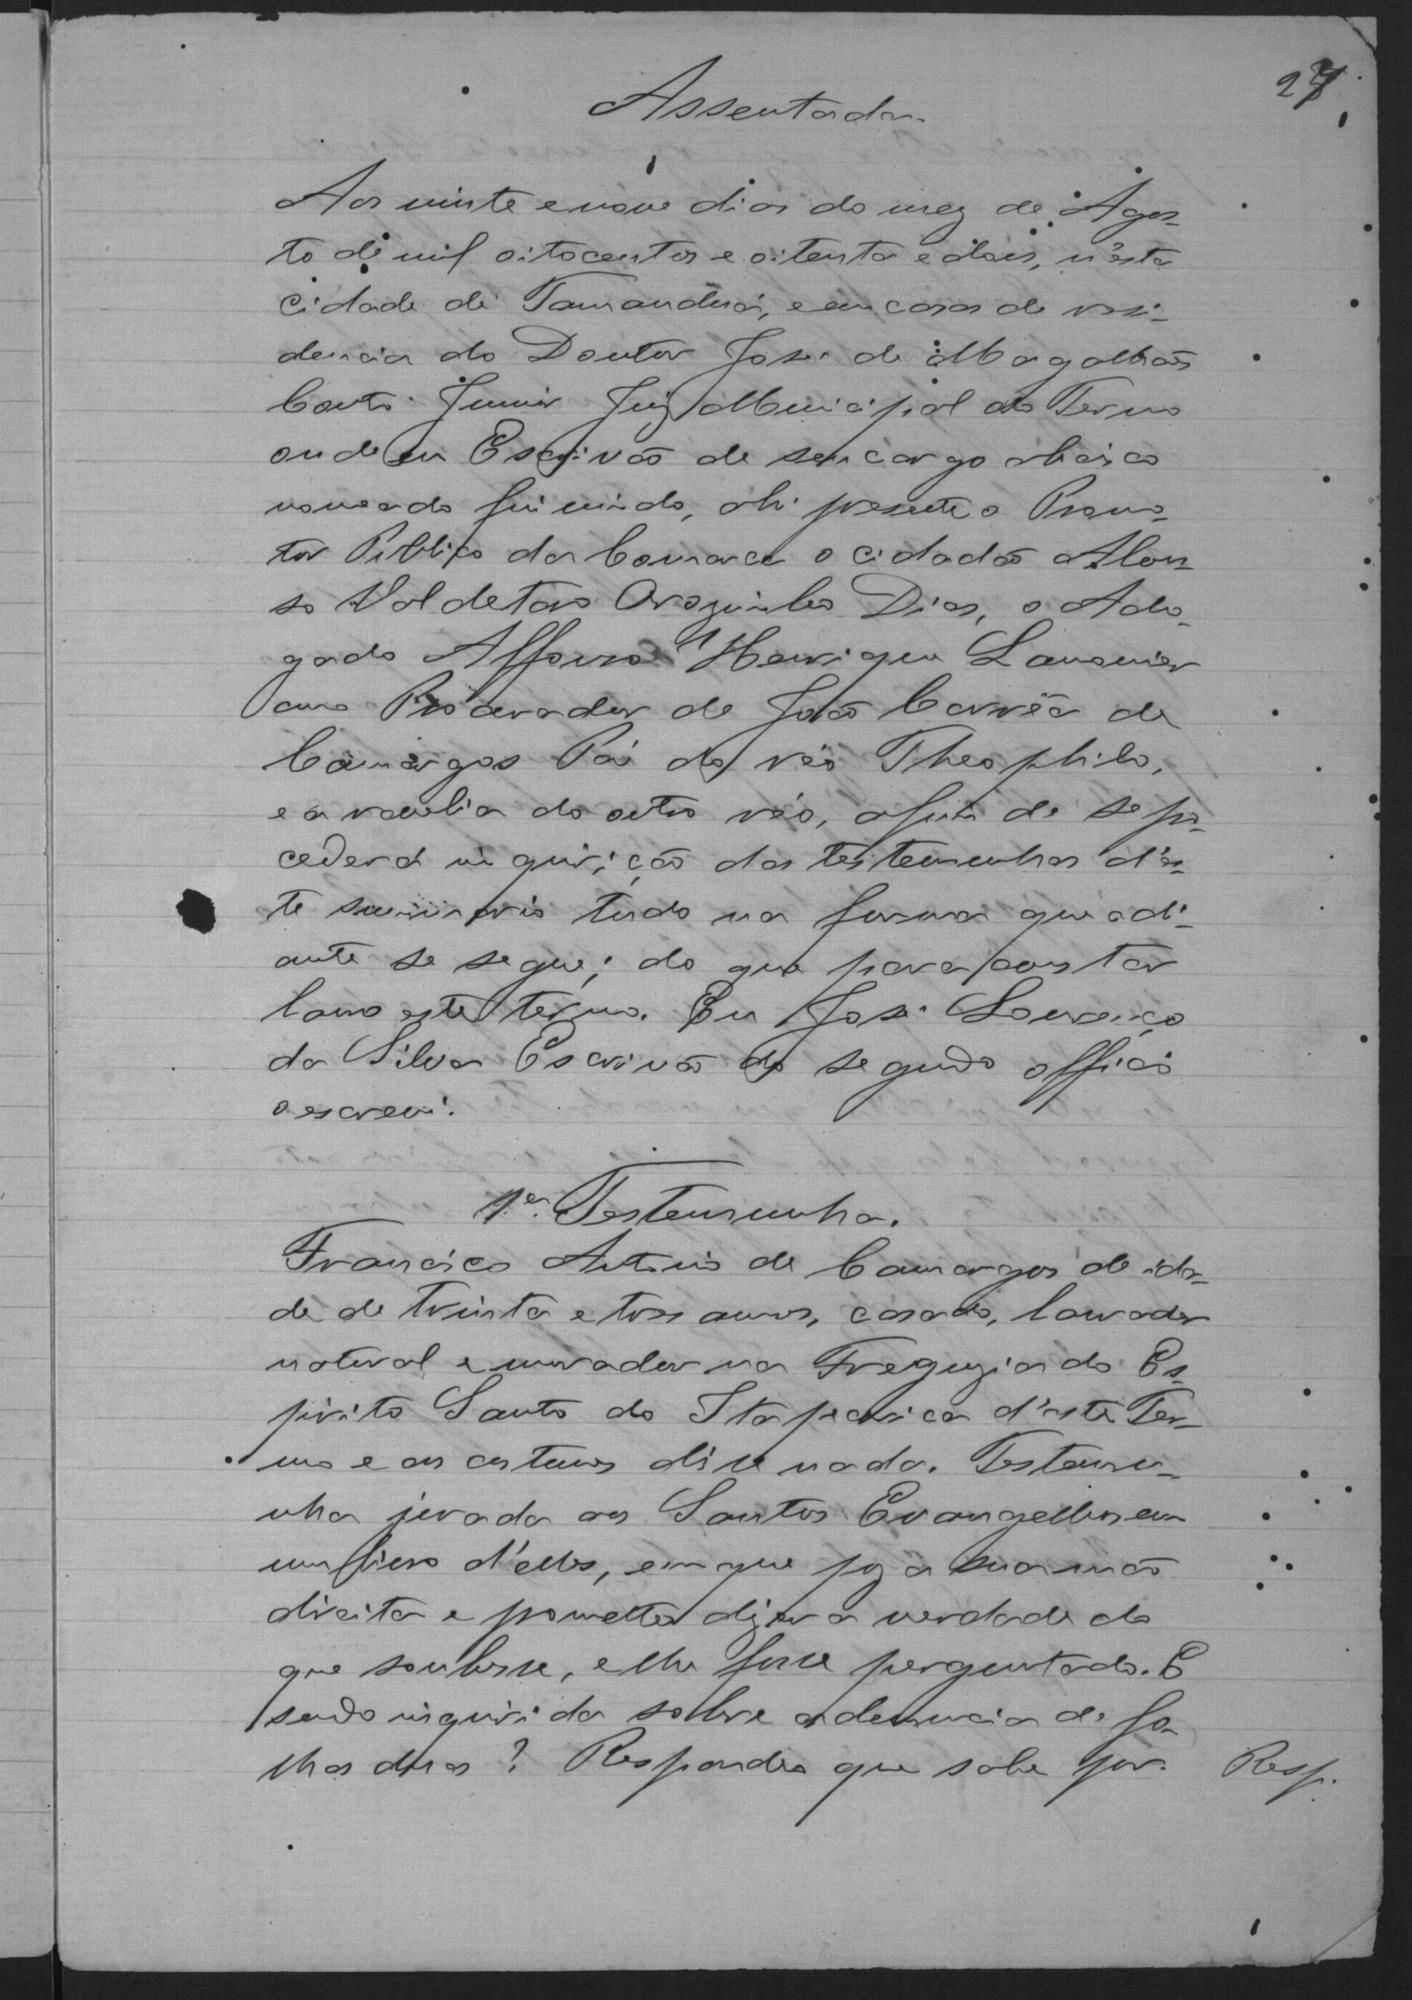 27
Assentada
Aos vinte e nove dias do mez de Agos-
to de mil oitocentos e oitenta e dois, n'esta
cidade de Tamanduá, e em casas de resi-
dencia do Doutor José de Magalhães
Couto Junior Juiz Municipal do Termo
onde eu Escrivão de seu cargo abaixo
nomeado fui vindo, ahi presente o Promo-
tor Publico da Comarca o cidadão Alon-
so Valdetaro Orozimbo Dias, o Advo-
gado Affonso Henrique Lamounier
como Procurador de João Corrêa de
Camargos Pai do réo Theophilo,
e a revelia do outro réo, afim de se pro-
ceder á inquirição das testemunhas d'es-
te summario tudo na forma que adi-
ante se segue; do que para constar
lavro este termo. Eu José Lourenço
da Silva Escrivão do segundo officio
o escrevi.
1ª Testemunha.
Francisco Antonio de Camargos de ida-
de de trinta e tres annos, casado, lavrador
natural e morador na Freguezia do Es-
pirito Santo do Itapecerica d'este Ter-
mo e aos costumes disse nada. Testemu-
nha jurada aos Santos Evangelhos em
um livro d'elles, em que poz a sua mão
direita e prometteo dizer a verdade do
que soubesse, e lhe fosse perguntado. E
sendo inquirida sobre a denuncia de fo-
lhas duas? Respondeo que sabe por Resp.